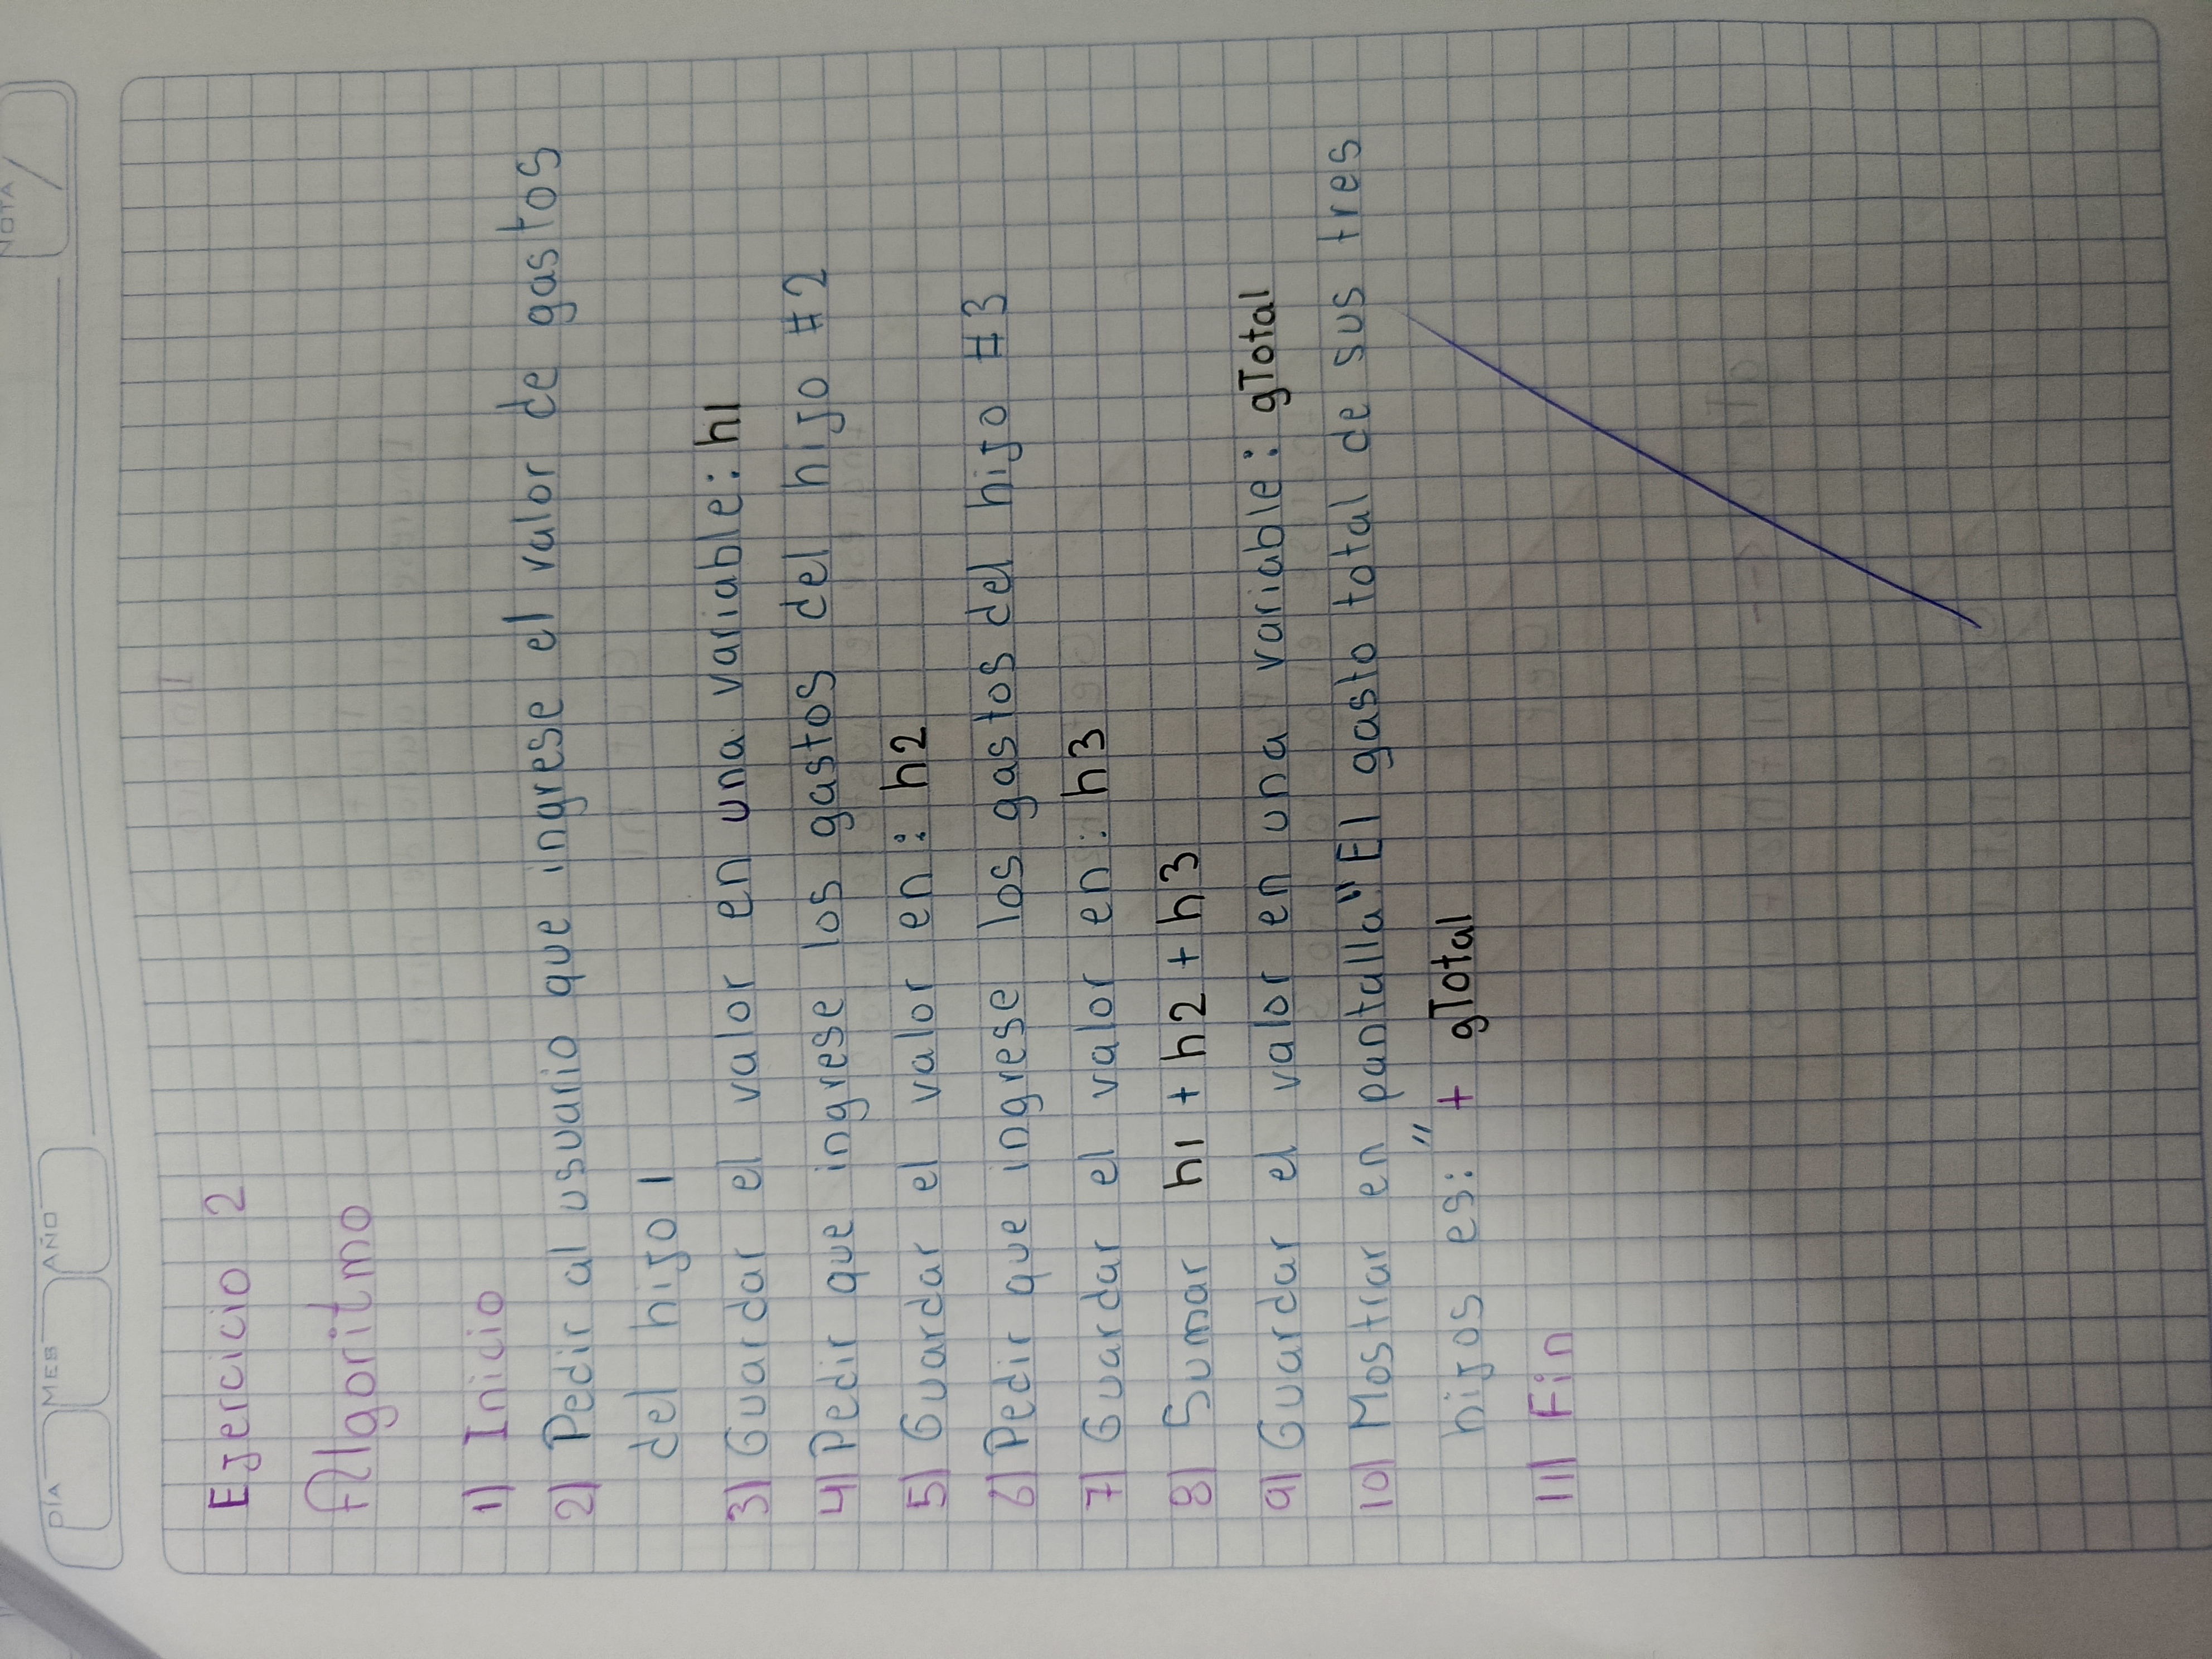 NOTA
DÍA MES AÑO
Ejercicio 2
Algoritmo
1) Inicio
2) Pedir al usuario que ingrese el valor de gastos
del hijo 1
3) Guardar el valor en una variable: h1
4) Pedir que ingrese los gastos del hijo #2
5) Guardar el valor en: h2
6) Pedir que ingrese los gastos del hijo #3
7) Guardar el valor en: h3
8) Sumar h1 + h2 + h3
9) Guardar el valor en una variable: gTotal
10) Mostrar en pantalla "El gasto total de sus tres
hijos es:" + gTotal
11) Fin